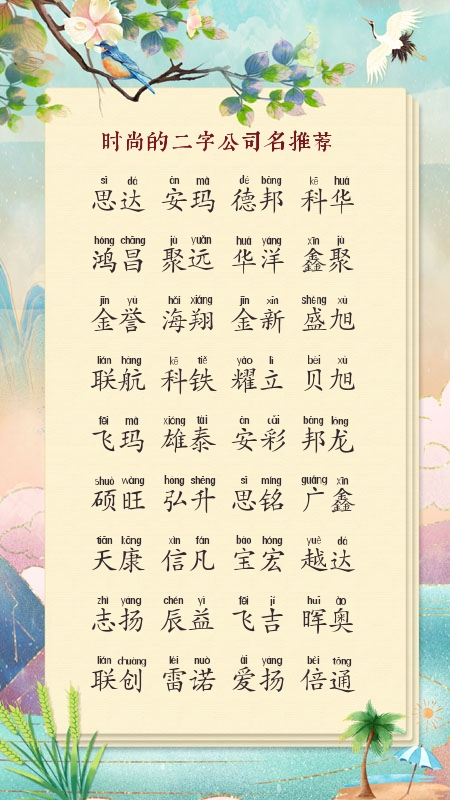 时尚的二字公司名推荐
sī dá ān mǎ dé bāng kē huá
思达 安玛 德邦 科华
hóng chāng jù yuǎn huá yáng xīn jù
鸿昌 聚远 华洋 鑫聚
jīn yù hǎi xiáng jīn xīn shèng xù
金誉 海翔 金新 盛旭
lián háng kē tiě yào lì bèi xù
联航 科铁 耀立 贝旭
fēi mǎ xióng tài ān cǎi bāng lóng
飞玛 雄泰 安彩 邦龙
shuò wàng hóng shēng sī míng guǎng xīn
硕旺 弘升 思铭 广鑫
tiān kāng xìn fán bǎo hóng yuè dá
天康 信凡 宝宏 越达
zhì yáng chén yì fēi jí huī ào
志扬 辰益 飞吉 晖奥
lián chuàng léi nuò ài yáng bèi tōng
联创 雷诺 爱扬 倍通